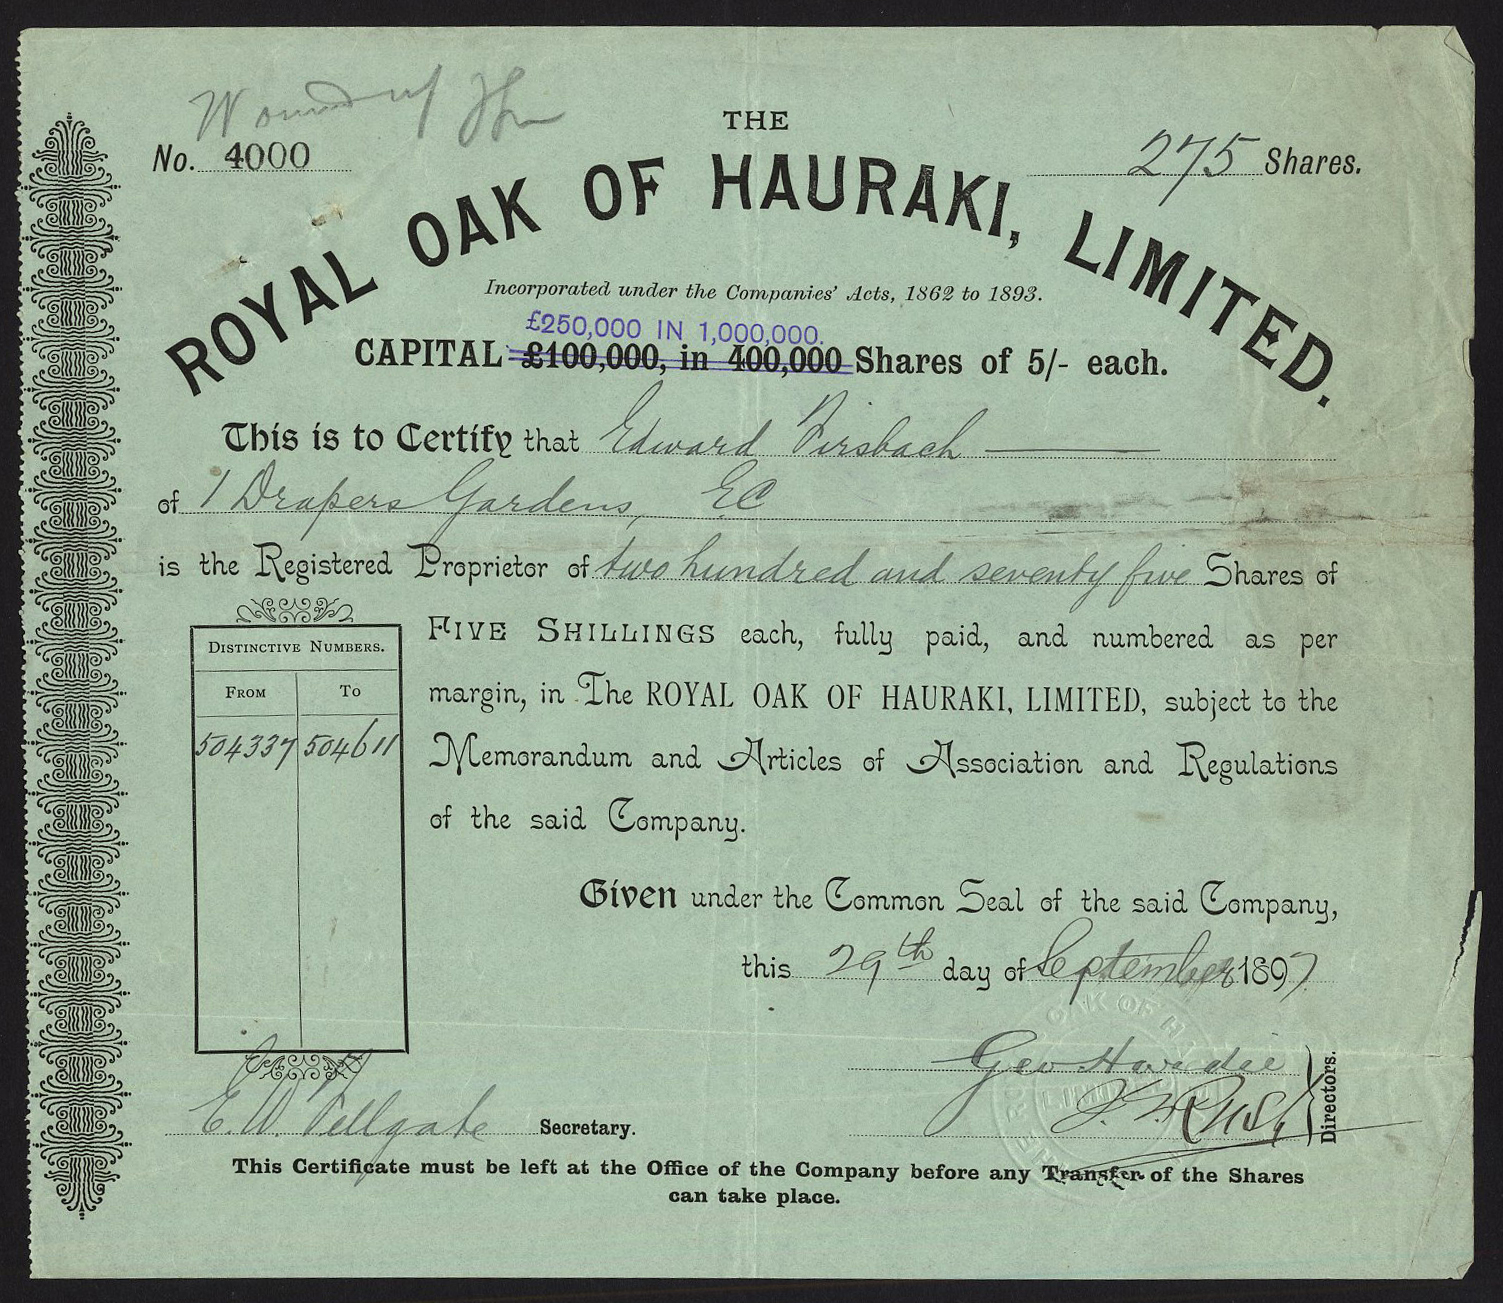 Wound up
THE
No. 4000
275 Shares.
ROYAL OAK OF HAURAKI, LIMITED.
Incorporated under the Companies' Acts, 1862 to 1893.
£250,000 IN 1,000,000.
CAPITAL £100,000, in 400,000 Shares of 5/- each.
This is to Certify that Edward Birsbach
of 1 Drapers Gardens, EC
is the Registered Proprietor of two hundred and seventy five Shares of
FIVE SHILLINGS each, fully paid, and numbered as per
margin, in The ROYAL OAK OF HAURAKI, LIMITED, subject to the
Memorandum and Articles of Association and Regulations
of the said Company.
DISTINCTIVE NUMBERS.
FROM TO
504337 504611
Given under the Common Seal of the said Company,
this 29th day of September 1897
Geo Hardie
Rush
Directors.
E. W. Fellgate Secretary.
This Certificate must be left at the Office of the Company before any Transfer of the Shares
can take place.